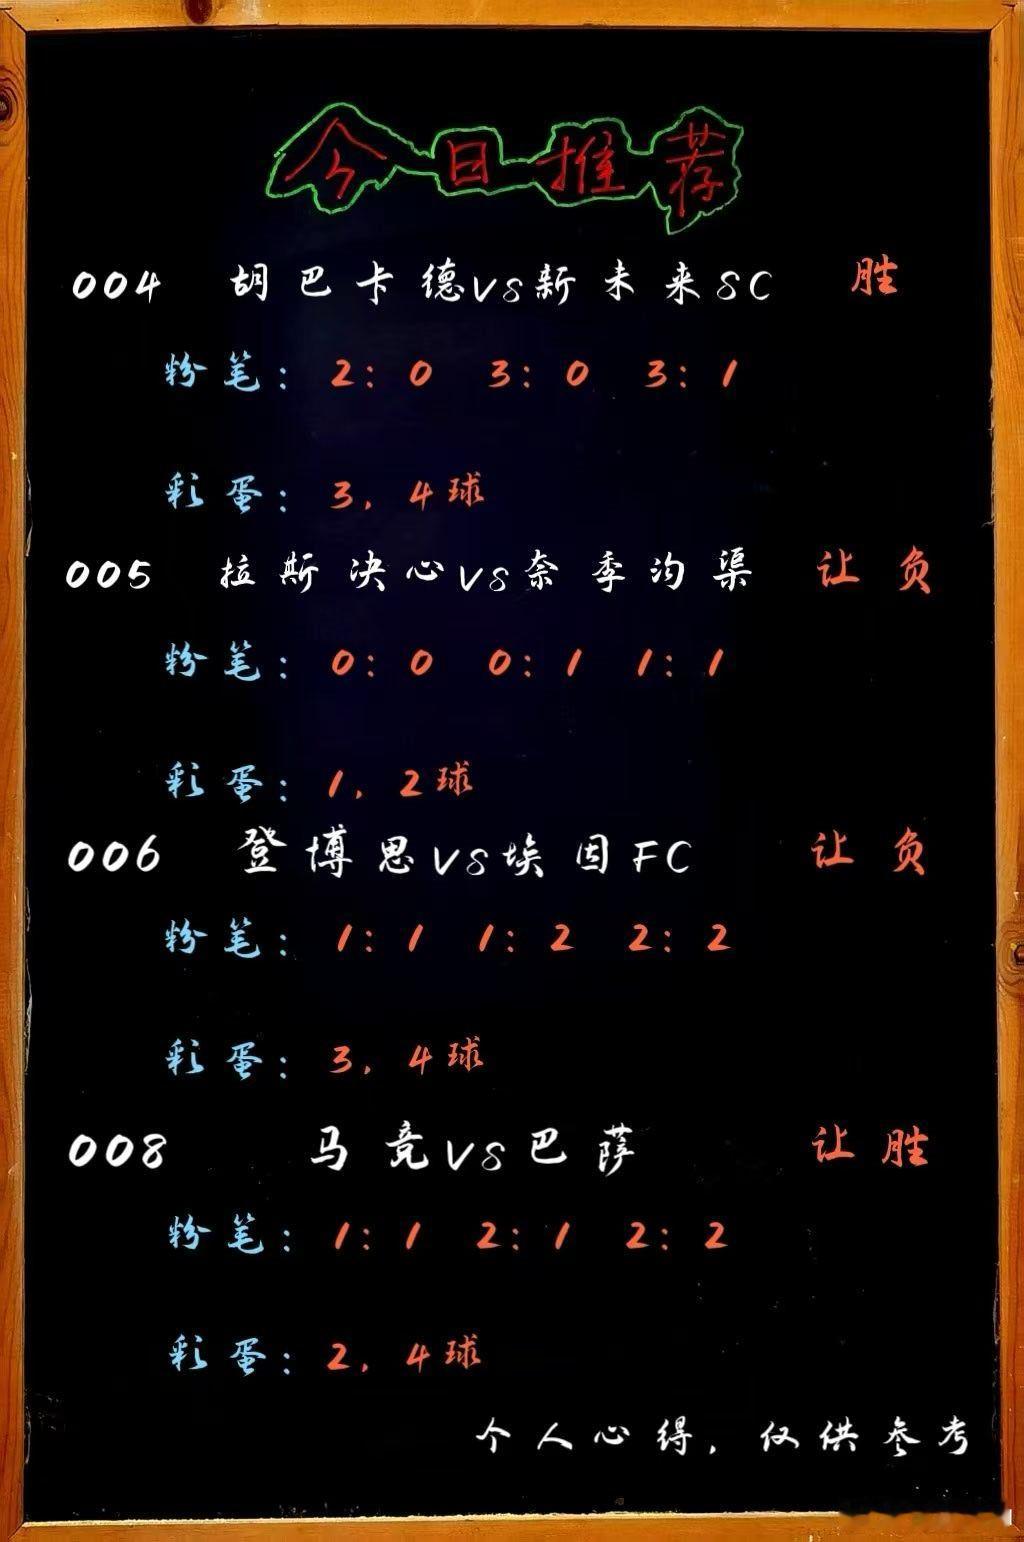 今日推荐
004 胡巴卡德VS新未来SC 胜
粉笔: 2:0 3:0 3:1
彩蛋: 3,4球
005 拉斯决心VS奈季沟渠 让负
粉笔: 0:0 0:1 1:1
彩蛋: 1,2球
006 登博思VS埃因FC 让负
粉笔: 1:1 1:2 2:2
彩蛋: 3,4球
008 马竞VS巴萨 让胜
粉笔: 1:1 2:1 2:2
彩蛋: 2,4球
个人心得,仅供参考